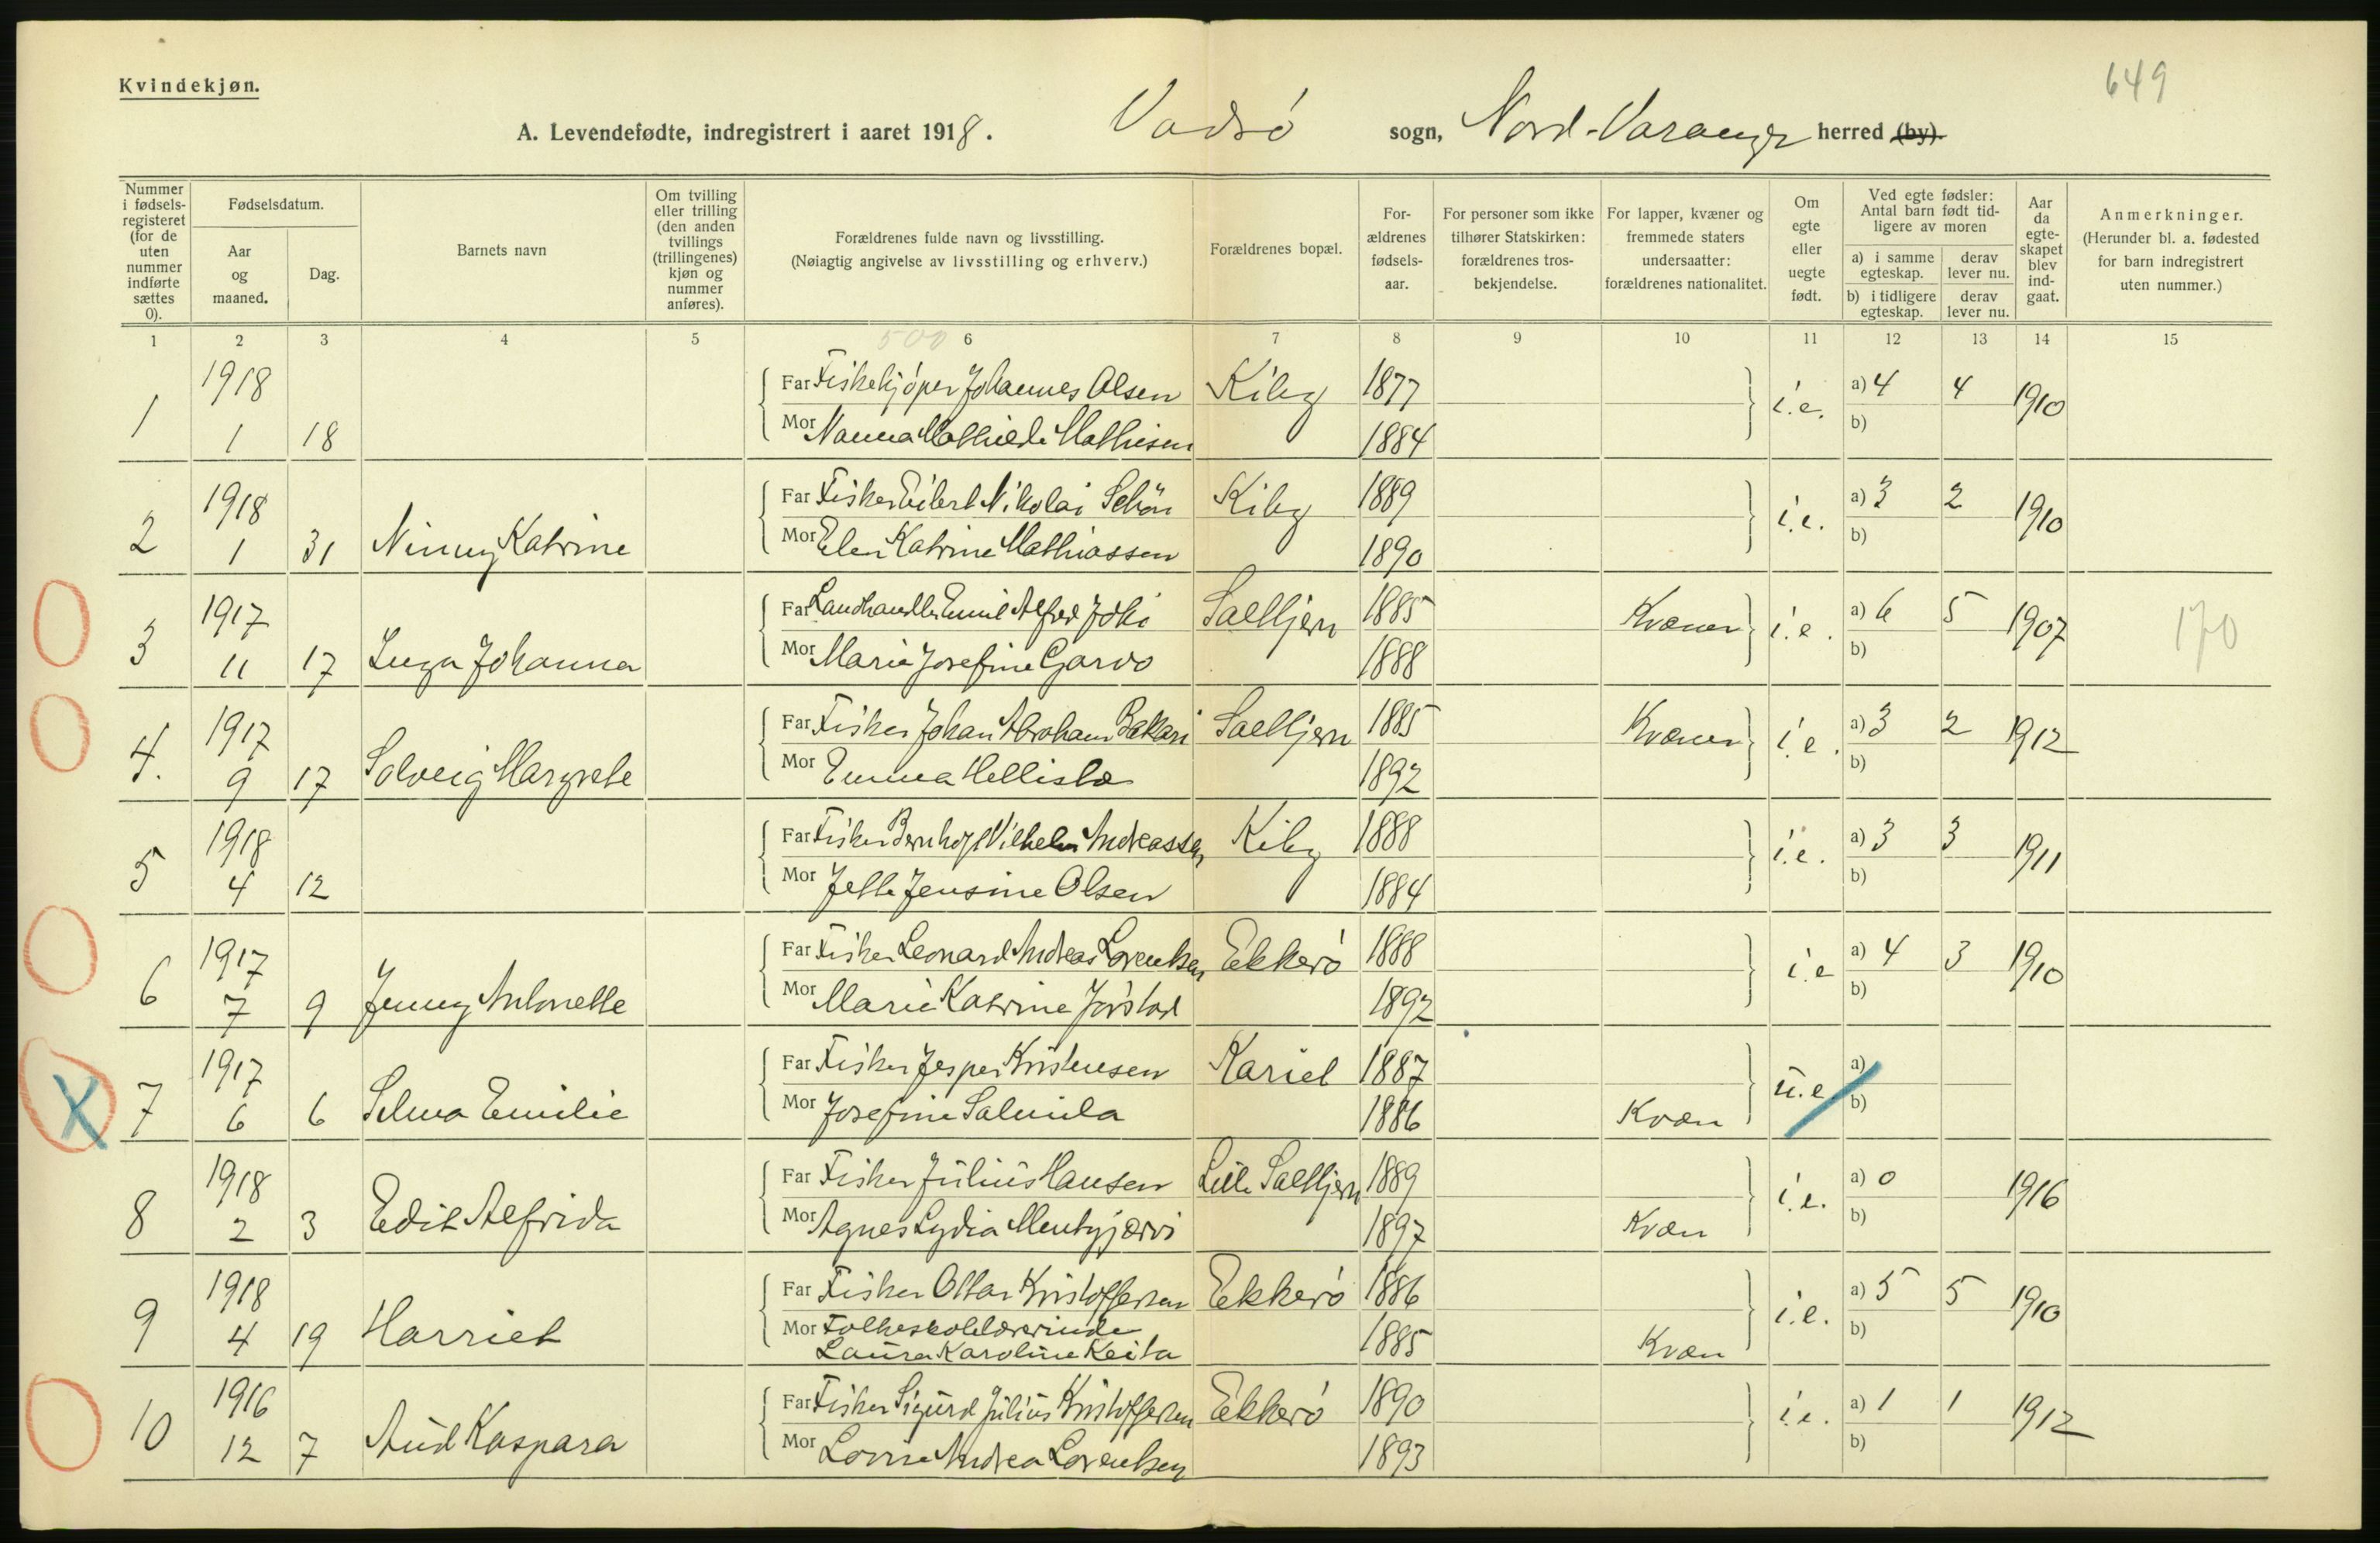 649
Kvindekjøn.
A. Levendefødte, indregistrert i aaret 1918. Vadsø sogn, Nord-Varanger herred (by).
Nummer i fødsels-registeret (for de uten nummer indførte sættes 0).
Fødselsdatum.
Aar og maaned.
Dag.
Barnets navn
Om tvilling eller trilling (den anden tvillings (trillingenes) kjøn og nummer anføres).
Forældrenes fulde navn og livsstilling.
(Nøiagtig angivelse av livsstilling og erhverv.)
Forældrenes bopæl.
For-ældrenes fødsels-aar.
For personer som ikke tilhører Statskirken: forældrenes tros-bekjendelse.
For lapper, kvæner og fremmede staters undersaatter: forældrenes nationalitet.
Om egte eller uegte født.
Ved egte fødsler: Antal barn født tid-ligere av moren
a) i samme egteskap. derav lever nu.
b) i tidligere egteskap. derav lever nu.
Aar da egte-skapet blev ind-gaat.
Anmerkninger.
(Herunder bl. a. fødested for barn indregistrert uten nummer.)
1 2 3 4 5 500 6 7 8 9 10 11 12 13 14 15
1 1918 1 18 Far Fiskekjøper Johannes Olsen Kiby 1877 i.e. a) 4 4 1910
Mor Nanna Mathilde Mathisen 1884 b)
2 1918 1 31 Ninny Katrine Far Fisker Eilert Nikolai Schön Kiby 1889 i.e. a) 3 2 1910
Mor Elen Katrine Mathiassen 1890 b)
3 1917 11 17 Inga Johanna Far Landhandler Emil Alfred Joki Saltjern 1885 Kvæner i.e. a) 6 5 1907 170
Mor Marie Josefine Garvo 1888 b)
4. 1917 9 17 Solveig Margrete Far Fisker Johan Abraham Bakkari Saltjern 1885 Kvæner i.e. a) 3 2 1912
Mor Emma Hellistæ 1892 b)
5 1918 4 12 Far Fisker Bernhoft Vilhelm Andreassen Kiby 1888 i.e. a) 3 3 1911
Mor Jette Jensine Olsen 1884 b)
6 1917 7 9 Jenny Antonette Far Fisker Leonard Andreas Lorentsen Ekkerö 1888 i.e a) 4 3 1910
Mor Marie Katrine Jörstad 1892 b)
X 7 1917 6 6 Selma Emilie Far Fisker Jesper Kristensen Kariel 1887 u.e a)
Mor Josefine Salmila 1886 Kvæn b)
8 1918 2 3 Edit Alfrida Far Fisker Julius Hansen Lille Saltjern 1889 i.e. a) 0 1916
Mor Agnes Lydia Mentyjærvi 1897 Kvæn b)
9 1918 4 19 Harriet Far Fisker Ottar Kristoffersen Ekkerö 1886 i.e. a) 5 5 1910
Mor Folkeskolelærerinde
Laura Karoline Keita 1885 Kvæn b)
10 1916 12 7 Aud Kaspara Far Fisker Sigurd Julius Kristoffersen Ekkerö 1890 i.e. a) 1 1 1912
Mor Lovise Andrea Lorentsen 1893 b)